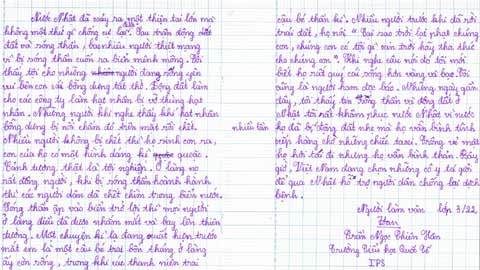 Nước Nhật đã xảy ra một thiên tai lớn mà
không một thứ gì chống cự lại. Sau trận động đất
đất và sóng thần, bao nhiêu người thiệt mạng
vì bị sóng thần cuốn ra biển mênh mông. Tôi
thấy tội cho những người đang sống yên
vui bên con cái bỗng dưng tất thở. Động đất làm
cho các công ty làm hạt nhân bị vỡ thùng hạt
nhân. Những người khi nghe thấy khí hạt nhân
bỗng dưng bị nôi chấm đỏ trên mặt rồi chết.
Nhiều người không bị chết thì họ sinh con ra,
con của họ có một hình dáng kì quoặc.
Cảnh tượng thật là tội nghiệp. Ở làng nọ
rất đông người, khi bị sóng thần hoành hành
thì các người dân đã chết chìm trong biển nước.
Sóng thần ập vào biển trở lời thì mọi người
ở làng điều đã dưa nhắm mắt và bay lên thiên
đường. Một chuyện kì lạ đang xuất hiện trước
mắt em là một cậu bé trai bốn tháng ở làng
ấy còn sống, trong khi các thanh niên trai
nhiều lần
cậu bé thần kì. Nhiều người trước khi đã rời
trái đất, họ nói " Tại sao trời lại phạt chúng
con, chúng con có tội gì sao trời hãy tha thứ
cho chúng con ". Khi nghe câu nói đó tôi mới
biết họ rất quý cái sống hơn vàng và bạc. Tôi
cũng là người ham đọc báo. Những ngày gần
đây, tôi thấy tin sóng thần và động đất ở
Nhật tôi rất khâm phục nước Nhật vì nước
họ đã bị động đất nhẹ mà họ vẫn bình tĩnh
xếp hàng chờ những chiếc taxi. Trông vẻ mặt
họ hơi tái đi nhưng họ vẫn bình thản. Bây
giờ, Việt Nam đang chọn những cô y tá giỏi
để qua Nhật hỗ trợ người dân chống lại dịch
bệnh.
Người làm văn lớp 3/22
Hân
Trần Ngọc Thiên Hân
Trường Tiểu học Quốc Tế
IPS